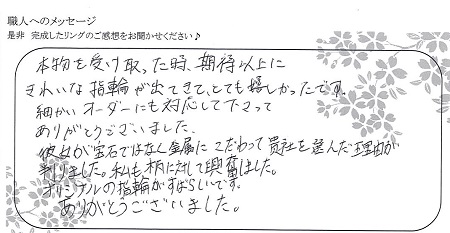 職人へのメッセージ
是非 完成したリングのご感想をお聞かせください♪
本物を受け取った時、期待以上に
きれいな指輪が出てきて、とても嬉しかったです。
細かいオーダーにも対応して下さって
ありがとうございました。
彼女が宝石ではなく金属にこだわって貴社を選んだ理由が
判りました。私も柄に対して興奮しました。
オリジナルの指輪がすばらしいです。
ありがとうございました。